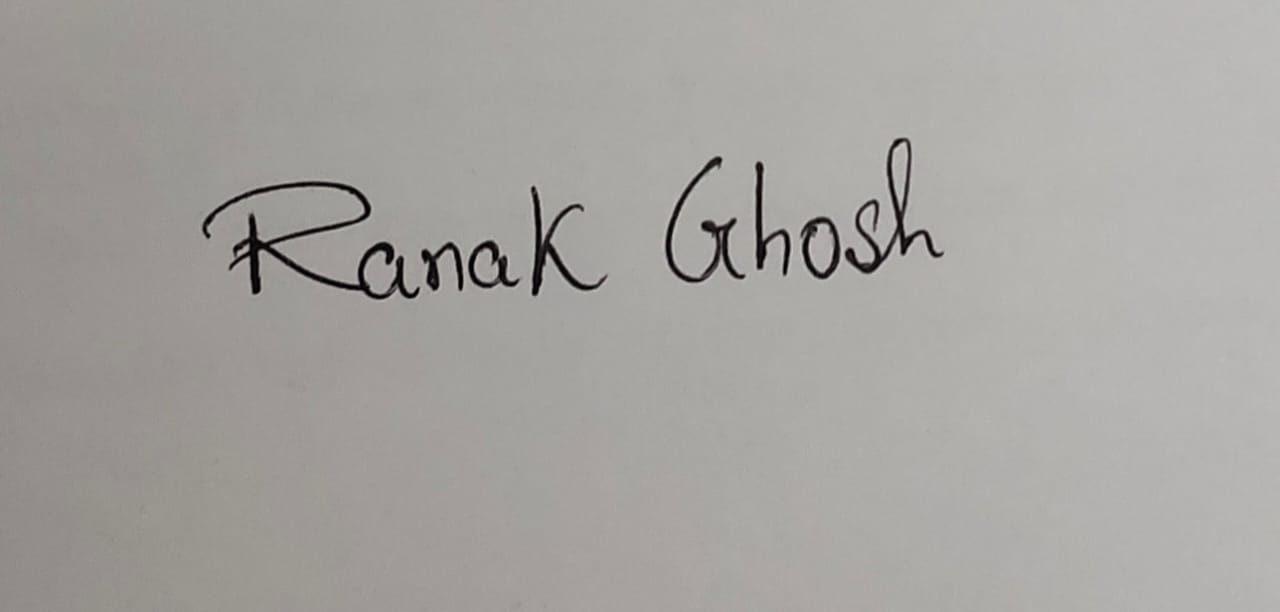 Ranak Ghosh